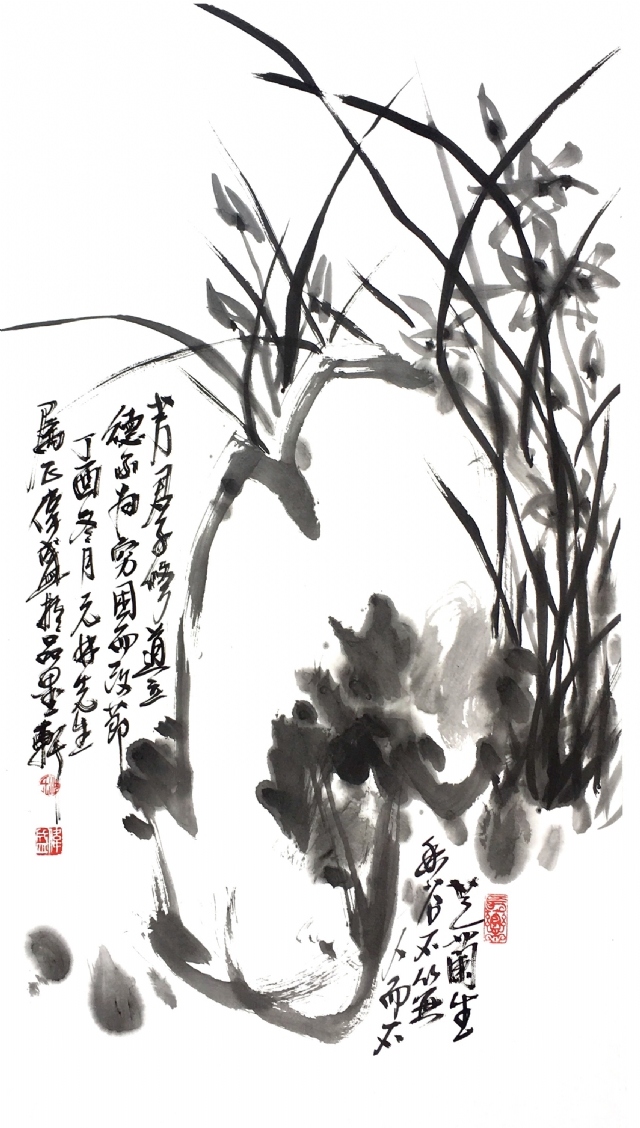 芝蘭生
谷不以無
人而不
芳君子修道立
德不為窮困而改節
丁酉冬月元好先生
屬正偉盛於品墨軒